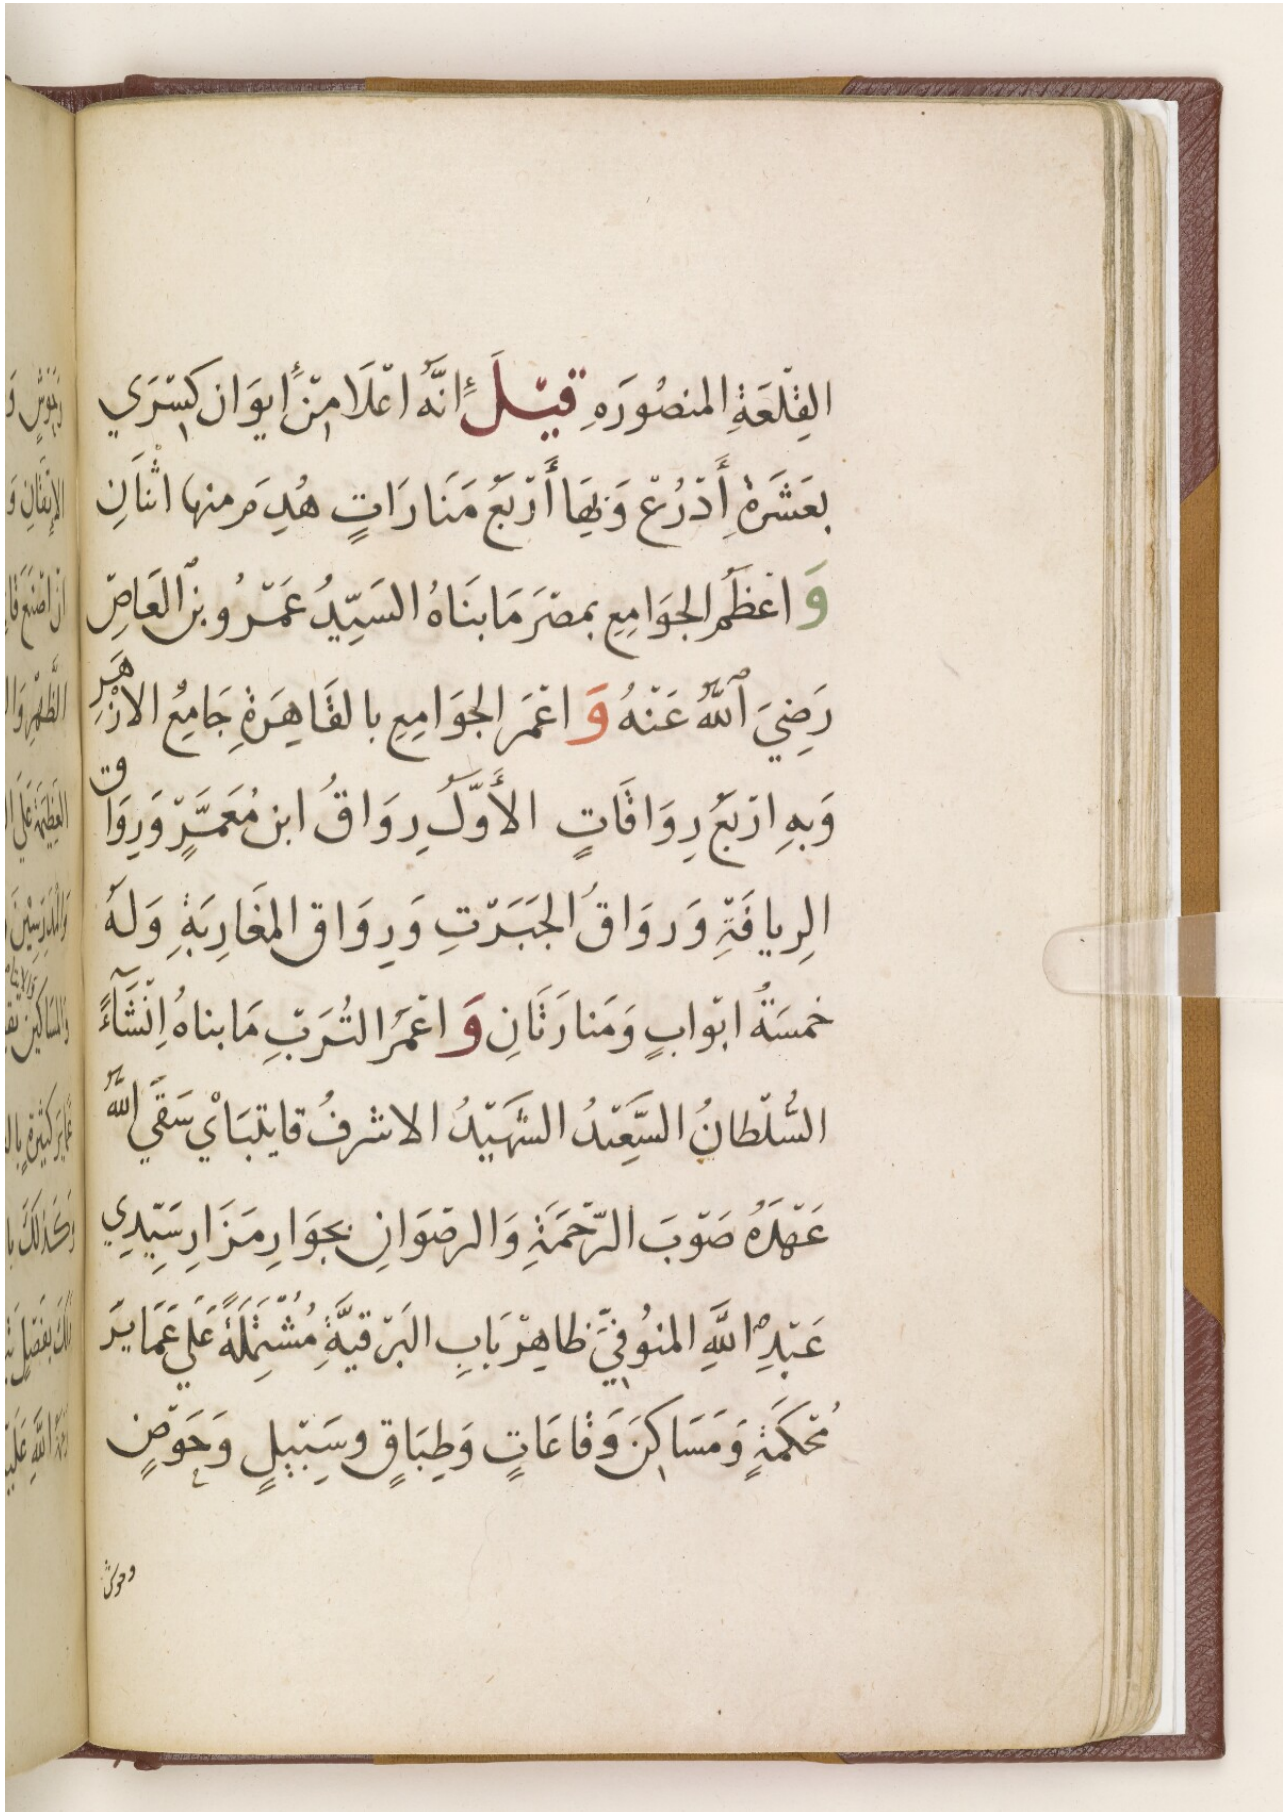 القِلْعَةِ المنصُورَهِ قِيْلَ اِنَّهُ اعْلَا مِنْ اِيوَان كِسْرَي
بعَشَرَةِ أَذْرُعْ وَبِهَا أَرْبَعُ مَنَارَاتٍ هُدِمَ منها اثْنَانِ
وَ اعْظَمُ الجَوَامِعِ بمصْرَ مَا بنَاهُ السَيِّدُ عَمْرُو بنُ العَاصِ
رَضِيَ اللهُ عَنْهُ وَ اعْمَر الجوَامِعِ بالقَاهِرَةِ جَامِعُ الازْهَرِ
وَبهِ ارْبَعُ رِوَاقَاتٍ الأَوَّلُ رِوَاقُ ابن مُعَمَّرٍ وَرِوَاق
الرِيافَةِ وَرِوَاقُ الجَبَرْتِ وَرِوَاق المغَارِبَةِ وَلَهُ
خمسَةُ ابْوابٍ وَمَنارَتَانِ وَ اعْمَرُ التُرَبِ مَا بناهُ اِنْشَآءً
السُّلْطانُ السَّعِيْدُ الشَّهِيْدُ الاشرفُ قايتبَاي سَقَي اللهُ
عَهْدَهُ صَوْبَ الرَّحْمَةِ وَالرضوَانِ بجوَارِ مَزَارِ سَيِّدِي
عَبْدِ اللهِ المنُوفِيِّ ظاهِرْ بَابِ البَرْقيَّةِ مُشْتَمِلَةً عَلَي عَمَايرَ
مُحْكَمَةٍ وَمَسَاكِنَ وَقَاعَاتٍ وَطِبَاقٍ وسَبِيْلٍ وَحَوْضٍ
وحوش